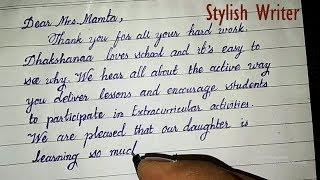 Stylish Writer
Dear Mrs. Mamta,
Thank you for all your hard work.
Dhakshanaa loves school and it's easy to
see why. We hear all about the active way
you deliver lessons and encourage students
to participate in Extracurricular activities.
We are pleased that our daughter is
learning so much